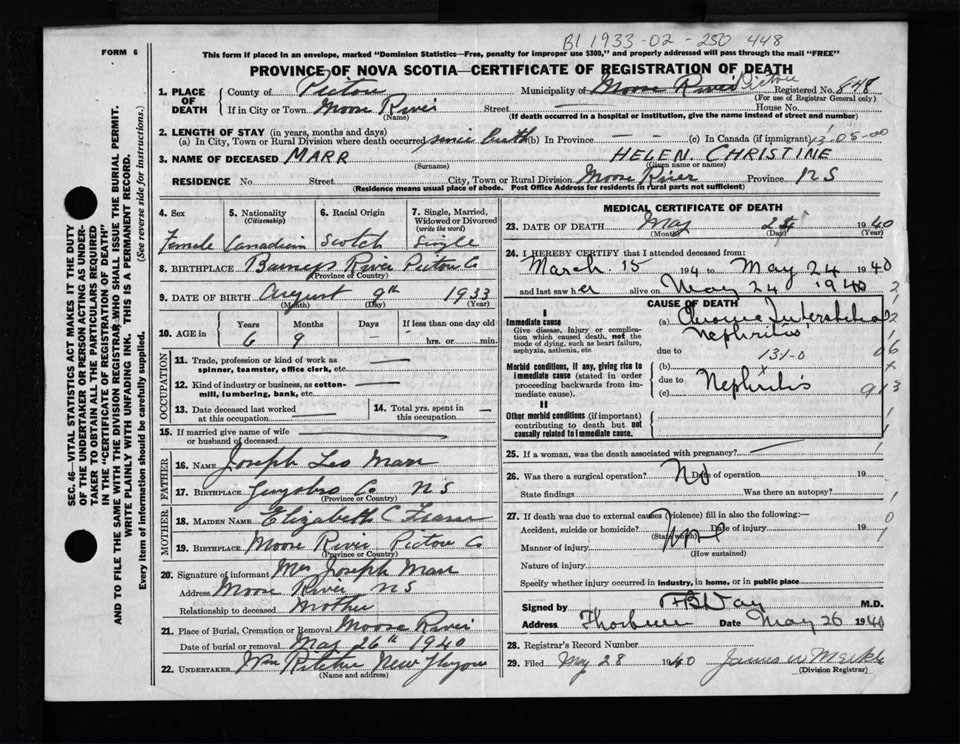 BI 1933-02-250448
FORM 6
This form if placed in an envelope, marked "Dominion Statistics—Free, penalty for improper use $300," and properly addressed will pass through the mail "FREE"
PROVINCE OF NOVA SCOTIA—CERTIFICATE OF REGISTRATION OF DEATH
1. PLACE OF DEATH
County of Pictou
Municipality of Moose River Pictou Registered No. 848
(For use of Registrar General only)
If in City or Town Moose River Street House No.
(Name)
(If death occurred in a hospital or institution, give the name instead of street and number)
2. LENGTH OF STAY (in years, months and days)
(a) In City, Town or Rural Division where death occurred since birth (b) In Province — — (c) In Canada (if immigrant)
3. NAME OF DECEASED MARR HELEN. CHRISTINE
(Surname) (Given name or names)
RESIDENCE No. Street City, Town or Rural Division Moose River Province NS
(Residence means usual place of abode. Post Office Address for residents in rural parts not sufficient)
4. Sex Female
5. Nationality (Citizenship) Canadian
6. Racial Origin Scotch
7. Single, Married, Widowed or Divorced (write the word) Single
8. BIRTHPLACE Barneys River Pictou Co
(Province or Country)
9. DATE OF BIRTH August 9th 1933
(Month) (Day) (Year)
10. AGE in Years Months Days If less than one day old
6 9 — hrs. or min.
OCCUPATION
11. Trade, profession or kind of work as spinner, teamster, office clerk, etc. —
12. Kind of industry or business, as cotton-mill, lumbering, bank, etc. —
13. Date deceased last worked at this occupation —
14. Total yrs. spent in this occupation —
15. If married give name of wife or husband of deceased —
FATHER
16. NAME Joseph Leo Marr
17. BIRTHPLACE Guysboro Co NS
(Province or Country)
MOTHER
18. MAIDEN NAME Elizabeth C Fraser
19. BIRTHPLACE Moose River Pictou Co
(Province or Country)
20. Signature of informant Mrs Joseph Marr
Address Moose River NS
Relationship to deceased Mother
21. Place of Burial, Cremation or Removal Moose River
Date of burial or removal May 26th 1940
22. UNDERTAKER Wm Ritchie New
(Name and address)
MEDICAL CERTIFICATE OF DEATH
23. DATE OF DEATH May 24 1940
(Month) (Day) (Year)
24. I HEREBY CERTIFY that I attended deceased from:
March 15 194 to May 24 1940
and last saw her alive on May 24 1940
CAUSE OF DEATH
I
Immediate cause
Give disease, injury or complication which caused death, not the mode of dying, such as heart failure, asphyxia, asthenia, etc
(a) Chronic Interstitial
Nephritis
due to 131-0
Morbid conditions, if any, giving rise to immediate cause (stated in order proceeding backwards from immediate cause).
(b) x
due to Nephritis
(c)
II
Other morbid conditions (if important) contributing to death but not causally related to immediate cause.
25. If a woman, was the death associated with pregnancy? —
26. Was there a surgical operation? No Date of operation 19
State findings Was there an autopsy?
27. If death was due to external causes (violence) fill in also the following:—
Accident, suicide or homicide? Date of injury 19
(State which)
Manner of injury
(How sustained)
Nature of injury
Specify whether injury occurred in industry, in home, or in public place
Signed by M.D.
Address Thorburn Date May 26 1940
28. Registrar's Record Number
29. Filed May 28 1940 James W
(Division Registrar)
SEC. 46—VITAL STATISTICS ACT MAKES IT THE DUTY
OF THE UNDERTAKER OR PERSON ACTING AS UNDER-
TAKER TO OBTAIN ALL THE PARTICULARS REQUIRED
IN THE "CERTIFICATE OF REGISTRATION OF DEATH"
AND TO FILE THE SAME WITH THE DIVISION REGISTRAR WHO SHALL ISSUE THE BURIAL PERMIT.
WRITE PLAINLY WITH UNFADING INK. THIS IS A PERMANENT RECORD.
Every item of information should be carefully supplied. (See reverse side for instructions.)